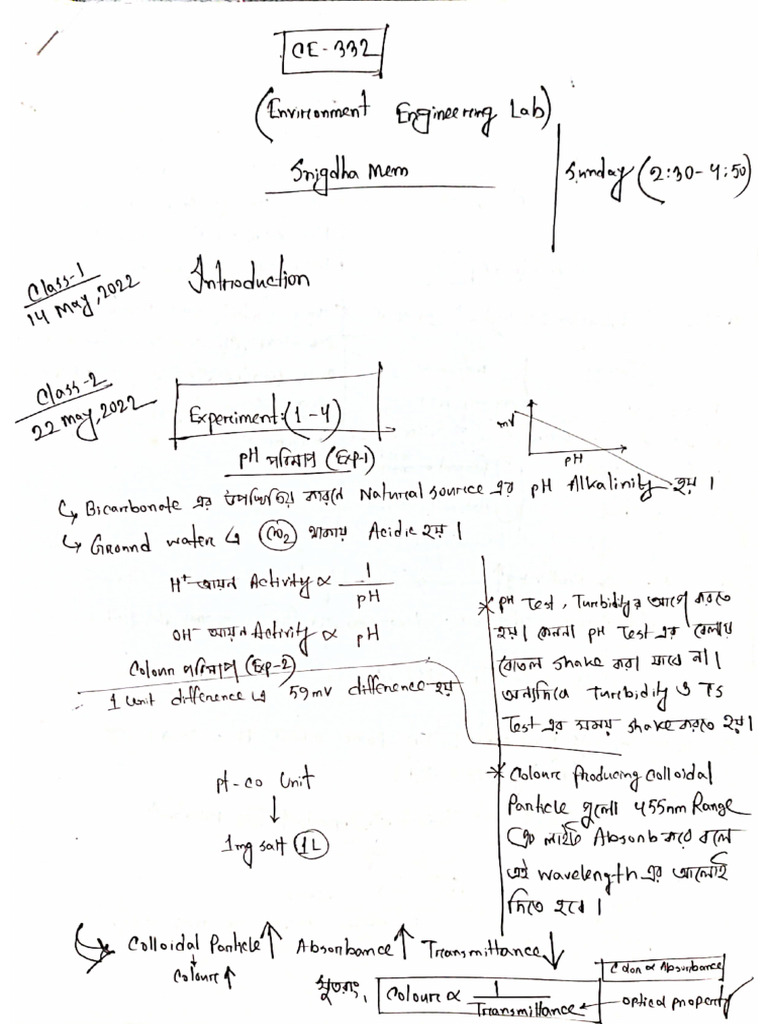 CE-332
(Environment Engineering Lab)
Snigdha Mem
Sunday (2:30-4:50)
Class-1
14 May, 2022
Introduction
Class-2
22 May, 2022
Experiment:(1-4)
mV
pH
pH পরিমাপ (Exp-1)
↳ Bicarbonate এর উপস্থিতির কারনে Natural source এর pH Alkalinity হয়।
↳ Ground water এ CO2 থাকায় Acidic হয়।
H+ আয়ন Activity ∝ 1/pH
OH- আয়ন Activity ∝ pH
Colour পরিমাপ (Exp-2)
1 unit difference এ 59mv difference হয়
* pH Test, Turbidity র আগে করতে
হয়। কেননা pH Test এর বেলায়
বোতল shake করা যাবে না।
অন্যদিকে Turbidity ও TS
Test এর সময় shake করতে হয়।
pt-co Unit
↓
1mg salt 1L
* Colour Producing Colloidal
Particle গুলো 455nm Range
এ লাইট Absorb করে বলে
এই wavelength এর আলোই
দিতে হবে।
Colloidal Particle ↑ Absorbance ↑ Transmittance ↓
↓
Colour ↑
সুতরাং, Colour ∝ 1/Transmittance ← optical property
Color ∝ Absorbance